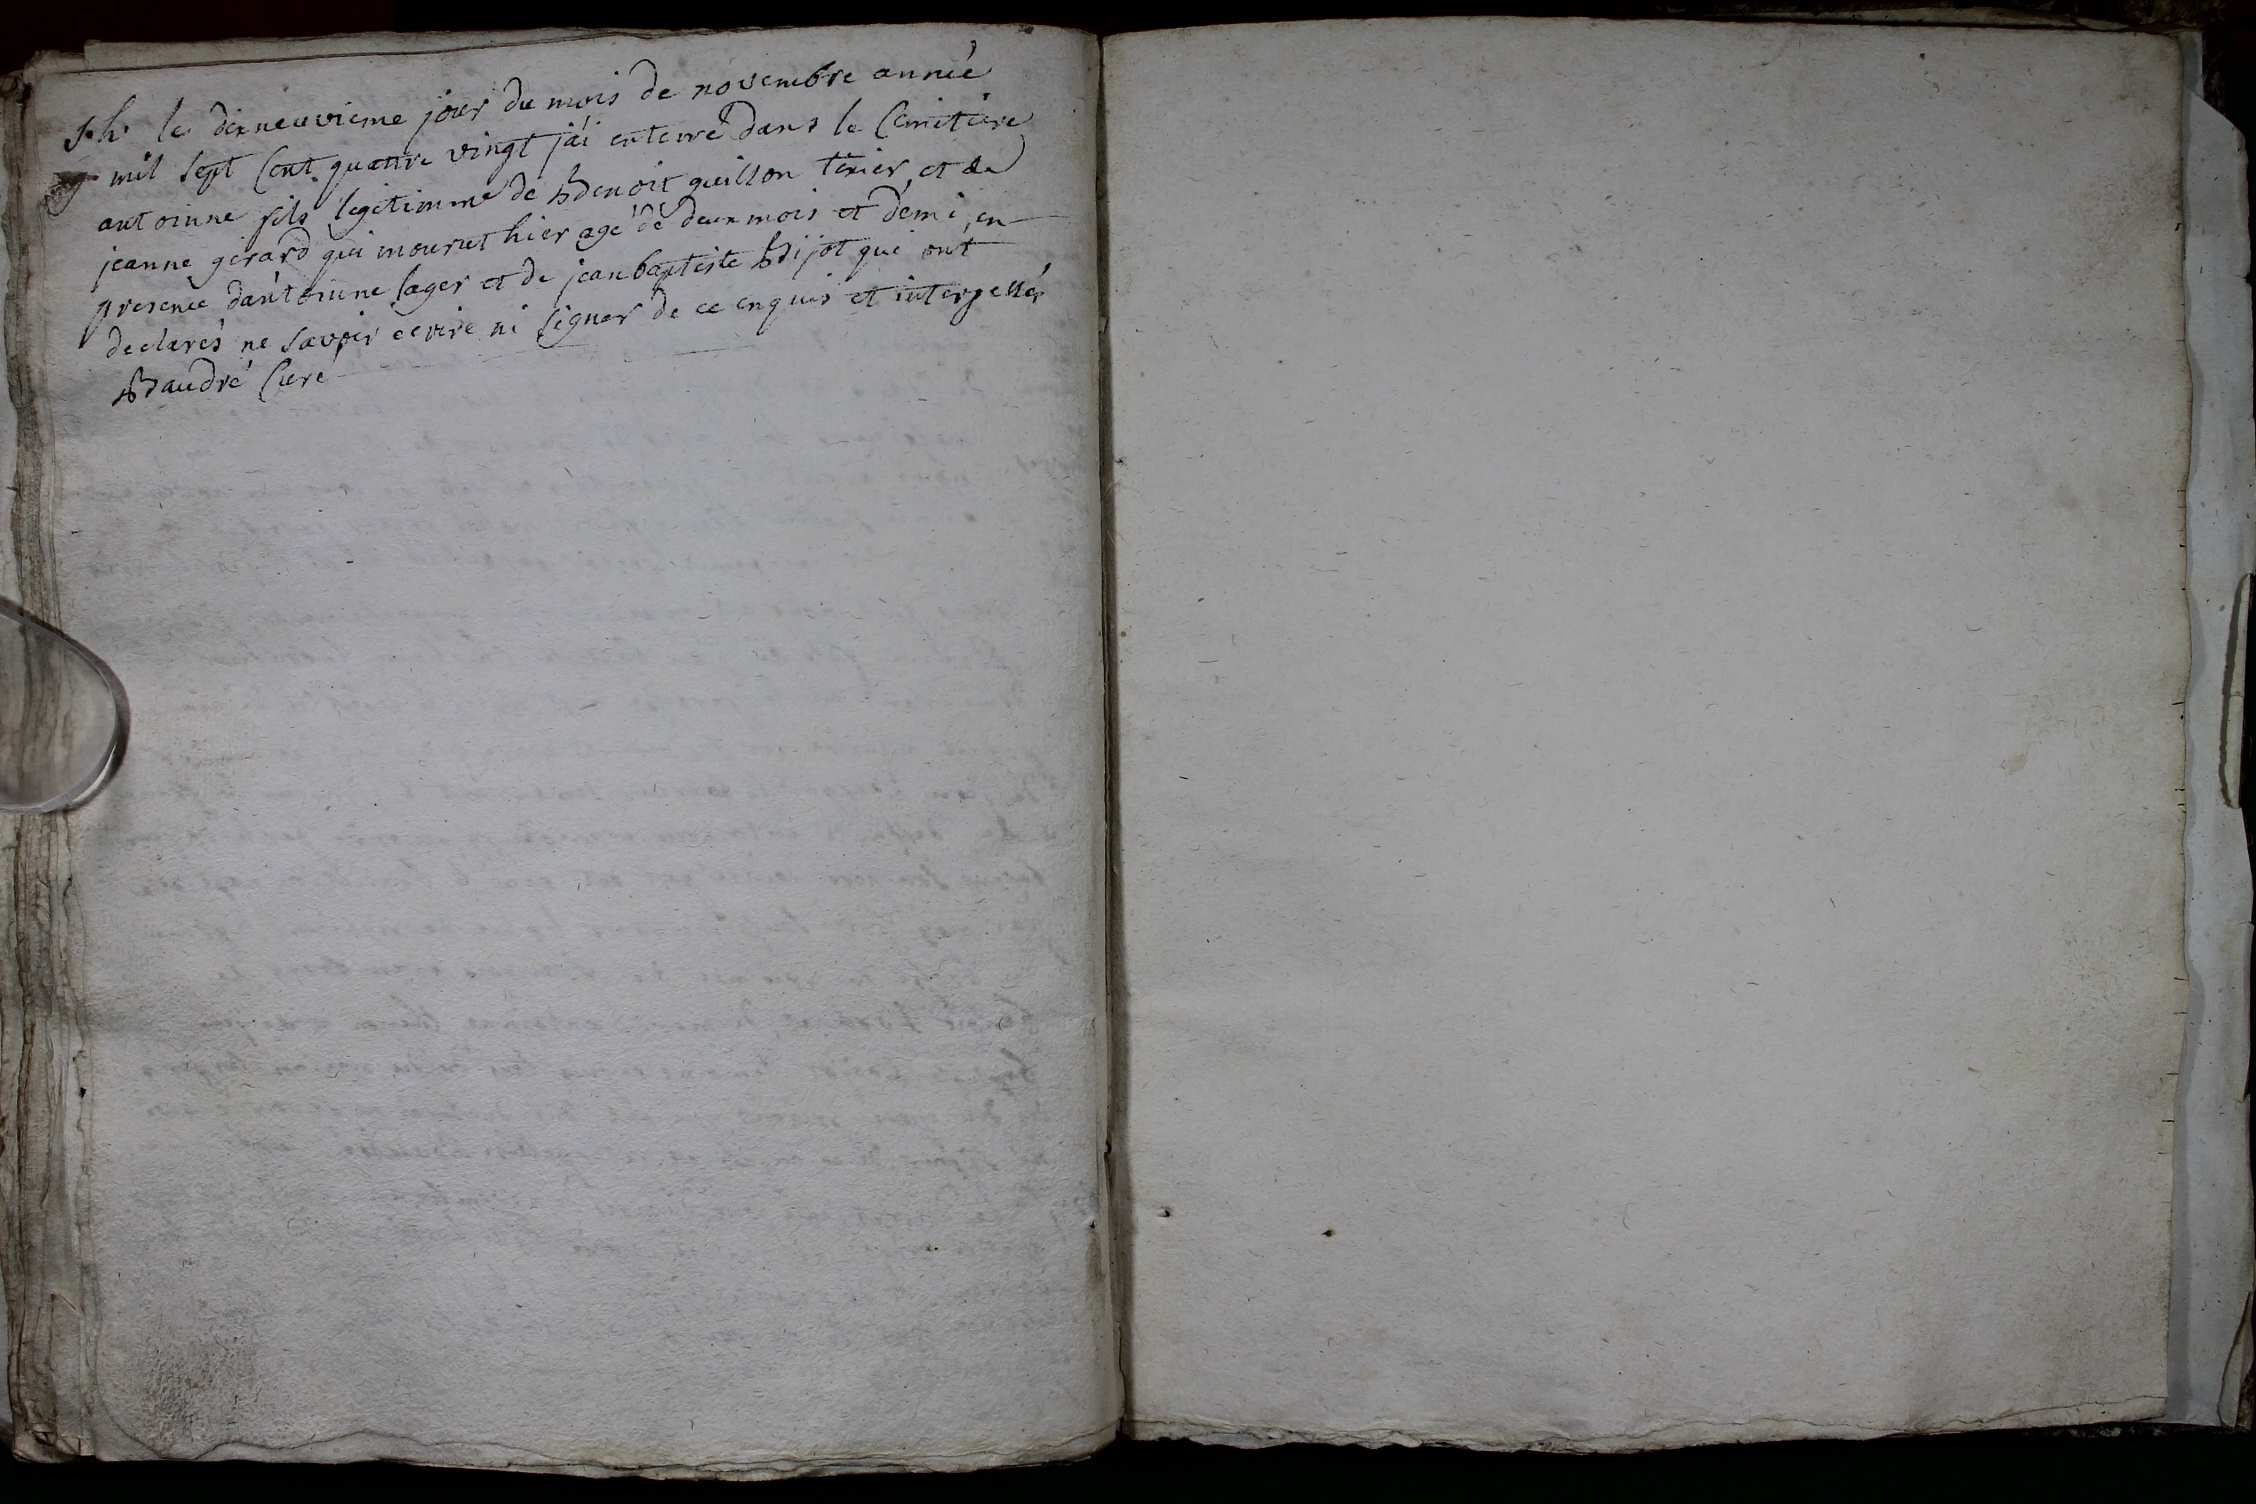 le dixneuvieme jour du mois de novembre année
mil sept cent quattre vingt j'ai enterré dans le Cemetiere
antoinne fils legitimme de Benoit guillon et de
jeanne girard qui mourut hier agé de deux mois et demi, en
presence d'antoinne lager et de jean baptiste Bijot qui ont
declarés ne savoir ecrire ni signer de ce enquis et interpellés
Baudré Curé